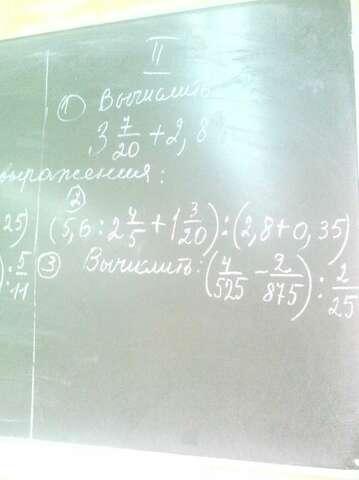 II
1 Вычислить
3 7/20 + 2,8
выражения:
2
25) (5,6 : 2 4/5 + 1 3/20) : (2,8 + 0,35)
) : 5/11 3 Вычислить: (4/525 - 2/875) : 2/25